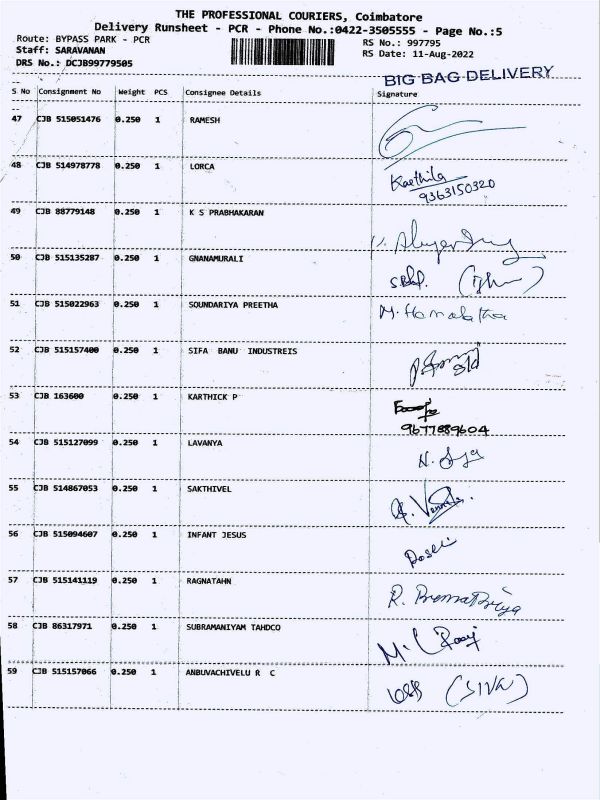 THE PROFESSIONAL COURIERS, Coimbatore
Delivery Runsheet - PCR - Phone No.:0422-3505555 - Page No.:5
Route: BYPASS PARK - PCR
RS No.: 997795
Staff: SARAVANAN
RS Date: 11-Aug-2022
DRS No.: DCJB99779505
BIG BAG DELIVERY
S No Consignment No Weight PCS Consignee Details Signature
47 CJB 515051476 0.250 1 RAMESH
48 CJB 514978778 0.250 1 LORCA
9363150320
49 CJB 88779148 0.250 1 K S PRABHAKARAN
50 CJB 515135287 0.250 1 GNANAMURALI
51 CJB 515022963 0.250 1 SOUNDARIYA PREETHA M. Hemalatha
52 CJB 515157400 0.250 1 SIFA BANU INDUSTREIS
53 CJB 163600 0.250 1 KARTHICK P
9677889604
54 CJB 515127099 0.250 1 LAVANYA
55 CJB 514867053 0.250 1 SAKTHIVEL
56 CJB 515094607 0.250 1 INFANT JESUS
57 CJB 515141119 0.250 1 RAGNATAHN R. Premapriya
58 CJB 86317971 0.250 1 SUBRAMANIYAM TAHDCO
59 CJB 515157066 0.250 1 ANBUVACHIVELU R C (SIVA)